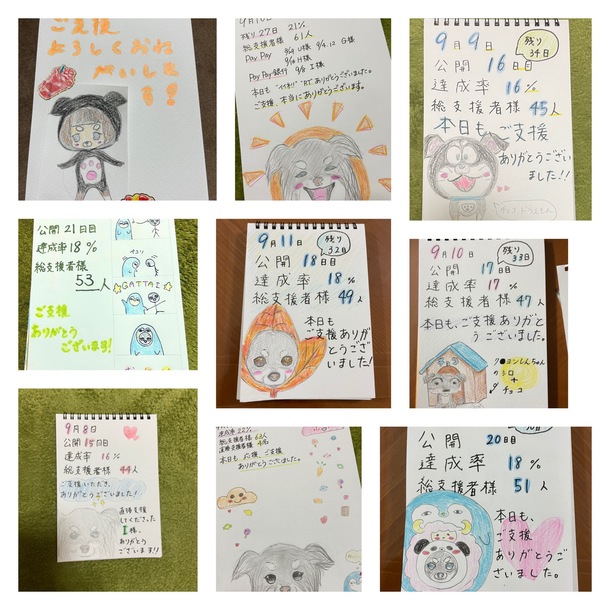 ご支援
よろしくおね
がいしま
す!
残り27日 21%
総支援者様 61人
Pay Pay
本日も
ご支援、本当にありがとうございます。
9月9日
残り
34日
公開16日目
達成率 16%
総支援者様 45人
本日も、ご支援
ありがとうござい
ました!!
公開21日目
達成率18%
総支援者様
53人
GATTAI
ご支援
ありがとう
ございます!
9月11日
残り
32日
公開 18日目
達成率 18%
総支援者様 49人
本日も
ご支援ありが
とうござ
いました!
9月10日
残り
33日
公開 17日目
達成率 17%
総支援者様 47人
本日も、ご支援ありがと
うございました。
チョコ
9月8日
公開15日目
達成率 16%
総支援者様 44人
ご支援いただき、
ありがとうございました!
直接支援
してくださった
I様、
ありがとう
ございます!
達成率22%
総支援者様 62人
本日も 応援、ご支援
ありがとうございました。
公開 20日目
達成率 18%
総支援者様 51人
本日も、
ご支援
ありがとうご
ざいました。